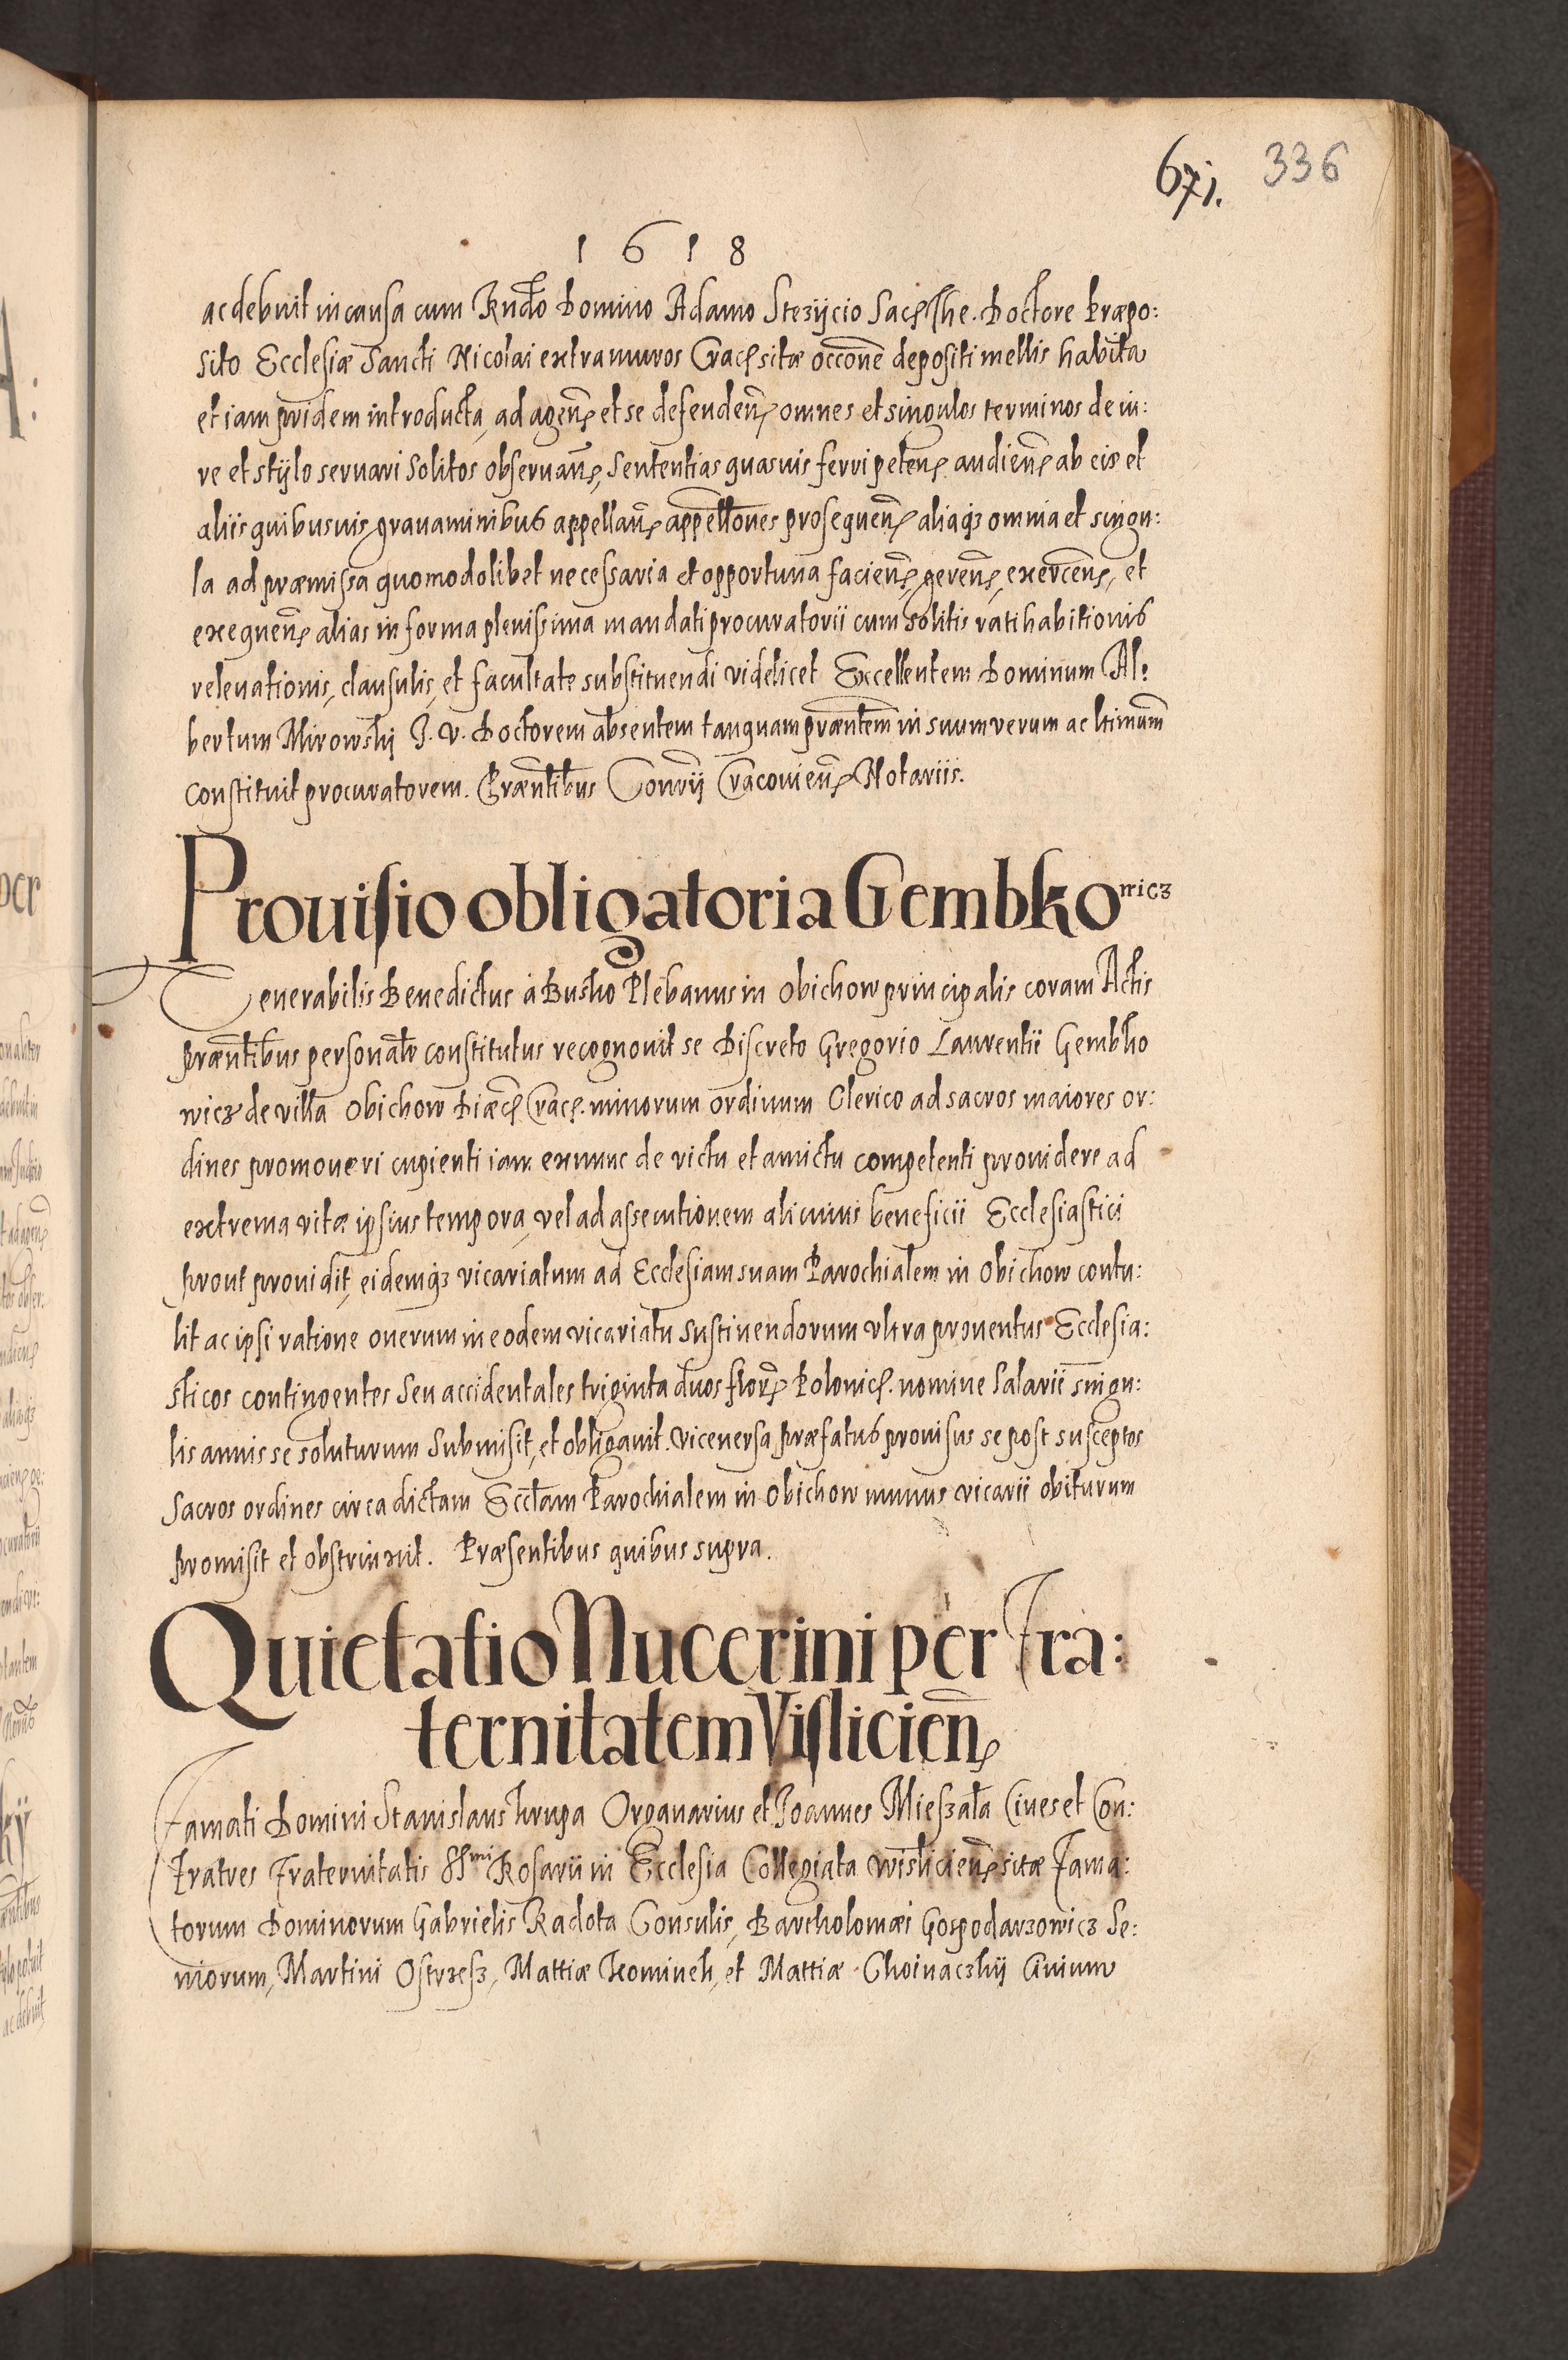 671. 336
1 6 1 8
ac debuit in causa cum Rndo Domino Adamo Stezÿcio Sac. The. Doctore Præpo:
sito Ecclesiæ Sancti Nicolai extra muros Crac. sitæ occone depositi mellis habita
et iam pridem introducta, ad agen. et se defenden. omnes et singulos terminos de iu:
re et stÿlo seruari solitos obseruan., sententias quasuis ferri peten. audien. ab eis et
aliis quibusuis grauaminibus appellan. appellones prosequen. aliaqȝ omnia et singu:
la ad præmissa quomodolibet necessaria et opportuna facien., geren., exercen., et
exequen. alias in forma plenissima mandati procuratorii cum solitis ratihabitionis
releuationis, clausulis, et facultate substituendi videlicet Excellentem Dominum Al:
bertum Mirowskj J. V. Doctorem absentem tanquam præntem in suum verum ac ltimum
constituit procuratorem. Præntibus Conrÿ Cracouien. Notariis.
Prouisio obligatoria Gembkowicz
Venerabilis Benedictus à Busko Plebanus in Obichow principalis coram Actis
præntibus personalr constitutus recognouit se Discreto Gregorio Laurentii Gembko
wicz de villa Obichow Diæc. Crac. minorum ordinum Clerico ad sacros maiores or:
dines promoueri cupienti iam exnunc de victu et amictu competenti prouidere ad
extrema vitæ ipsius tempora, vel ad assecutionem alicuius beneficii Ecclesiastici
prout prouidit, eidemqȝ vicariatum ad Ecclesiam suam Parochialem in Obichow contu:
lit ac ipsi ratione onerum in eodem vicariatu sustinendorum vltra prouentus Ecclesia:
sticos contingentes seu accidentales triginta duos flor. Polonic. nomine salarii singu:
lis annis se soluturum submisit, et obligauit. Viceuersa præfatus prouisus se post susceptos
sacros ordines circa dictam Ecclam Parochialem in Obichow munus vicarii obiturum
promisit et obstrinxit. Præsentibus quibus supra.
Quietatio Nucerini per Fra:
ternitatem Vislicien.
Famati Domini Stanislaus Krupa Organarius et Joannes Mieszała Ciues et Con:
fratres Fraternitatis SSmi Rosarii in Ecclesia Collegiata Wislicien. sitæ Fama:
torum Dominorum Gabrielis Radota Consulis, Bartholomæi Gospodarzowicz Se:
niorum, Martini Ostrzesz, Mattiæ Kominek, et Mattiæ Choinaczkij Ciuium